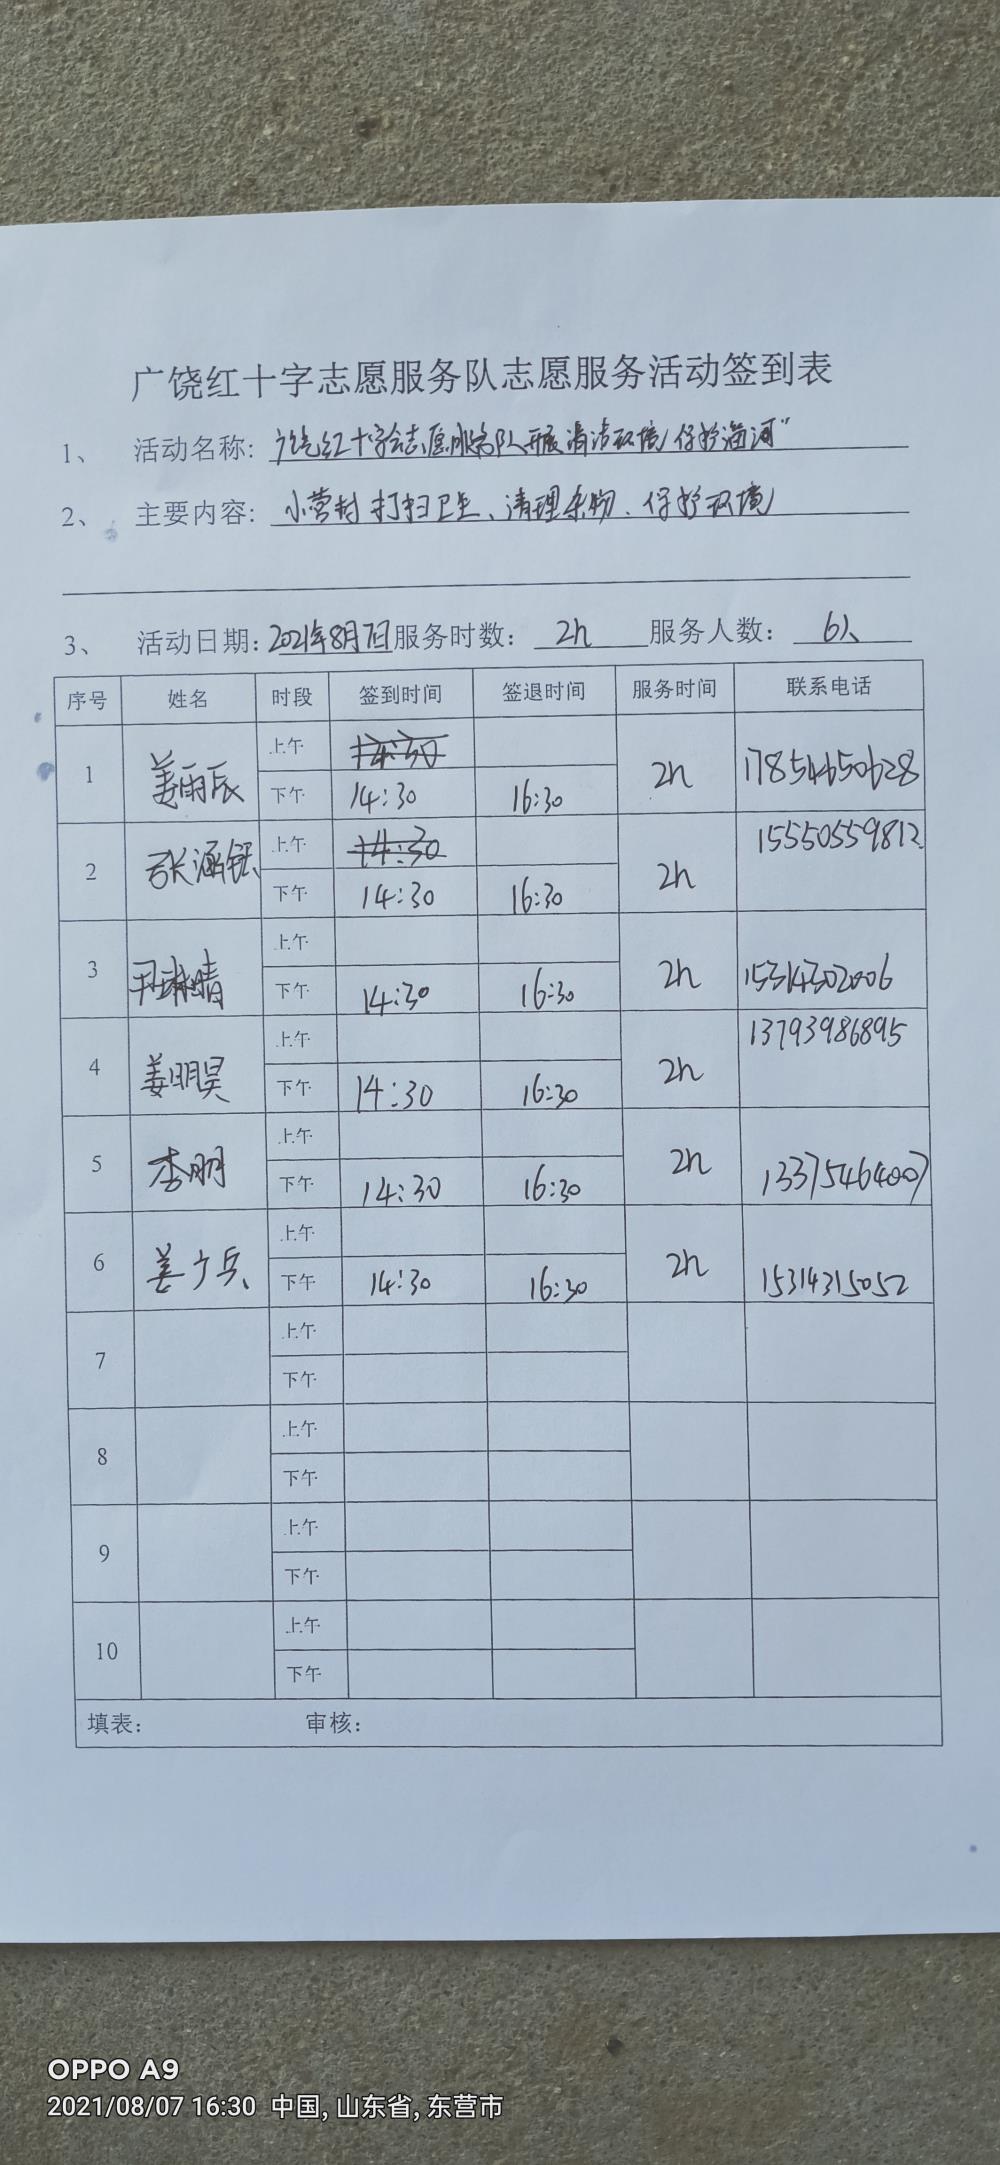 广饶红十字志愿服务队志愿服务活动签到表
1、 活动名称: 广饶红十字会志愿服务队开展清洁环境 保护海河"
2、 主要内容: 小营村 打扫卫生、清理杂物、保护环境
3、 活动日期: 2021年8月7日 服务时数: 2h 服务人数: 6人
序号 姓名 时段 签到时间 签退时间 服务时间 联系电话
1 姜雨辰 上午 14:30 2h 17854650628
下午 14:30 16:30
2 张涵 上午 14:30 2h 15550559812
下午 14:30 16:30
3 晴 上午 2h 15314302006
下午 14:30 16:30
4 姜明昊 上午 2h 13793986895
下午 14:30 16:30
5 李明 上午 2h 13375464007
下午 14:30 16:30
6 姜广兵 上午 2h 15314315052
下午 14:30 16:30
7 上午
下午
8 上午
下午
9 上午
下午
10 上午
下午
填表: 审核:
OPPO A9
2021/08/07 16:30 中国, 山东省, 东营市